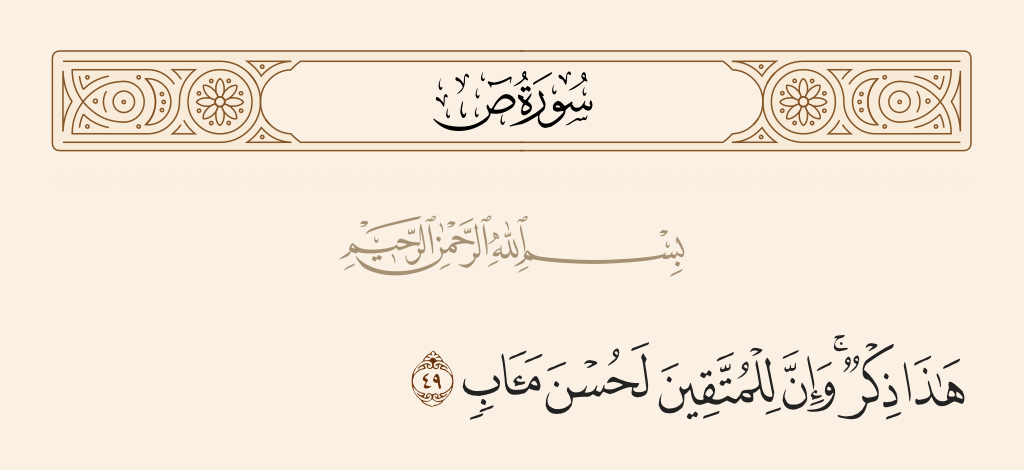 سُورَةُ صٓ
بِسْمِ ٱللَّهِ ٱلرَّحْمَٰنِ ٱلرَّحِيمِ
هَٰذَا ذِكْرٌ ۚ وَإِنَّ لِلْمُتَّقِينَ لَحُسْنَ مَـَٔابٍ ٤٩